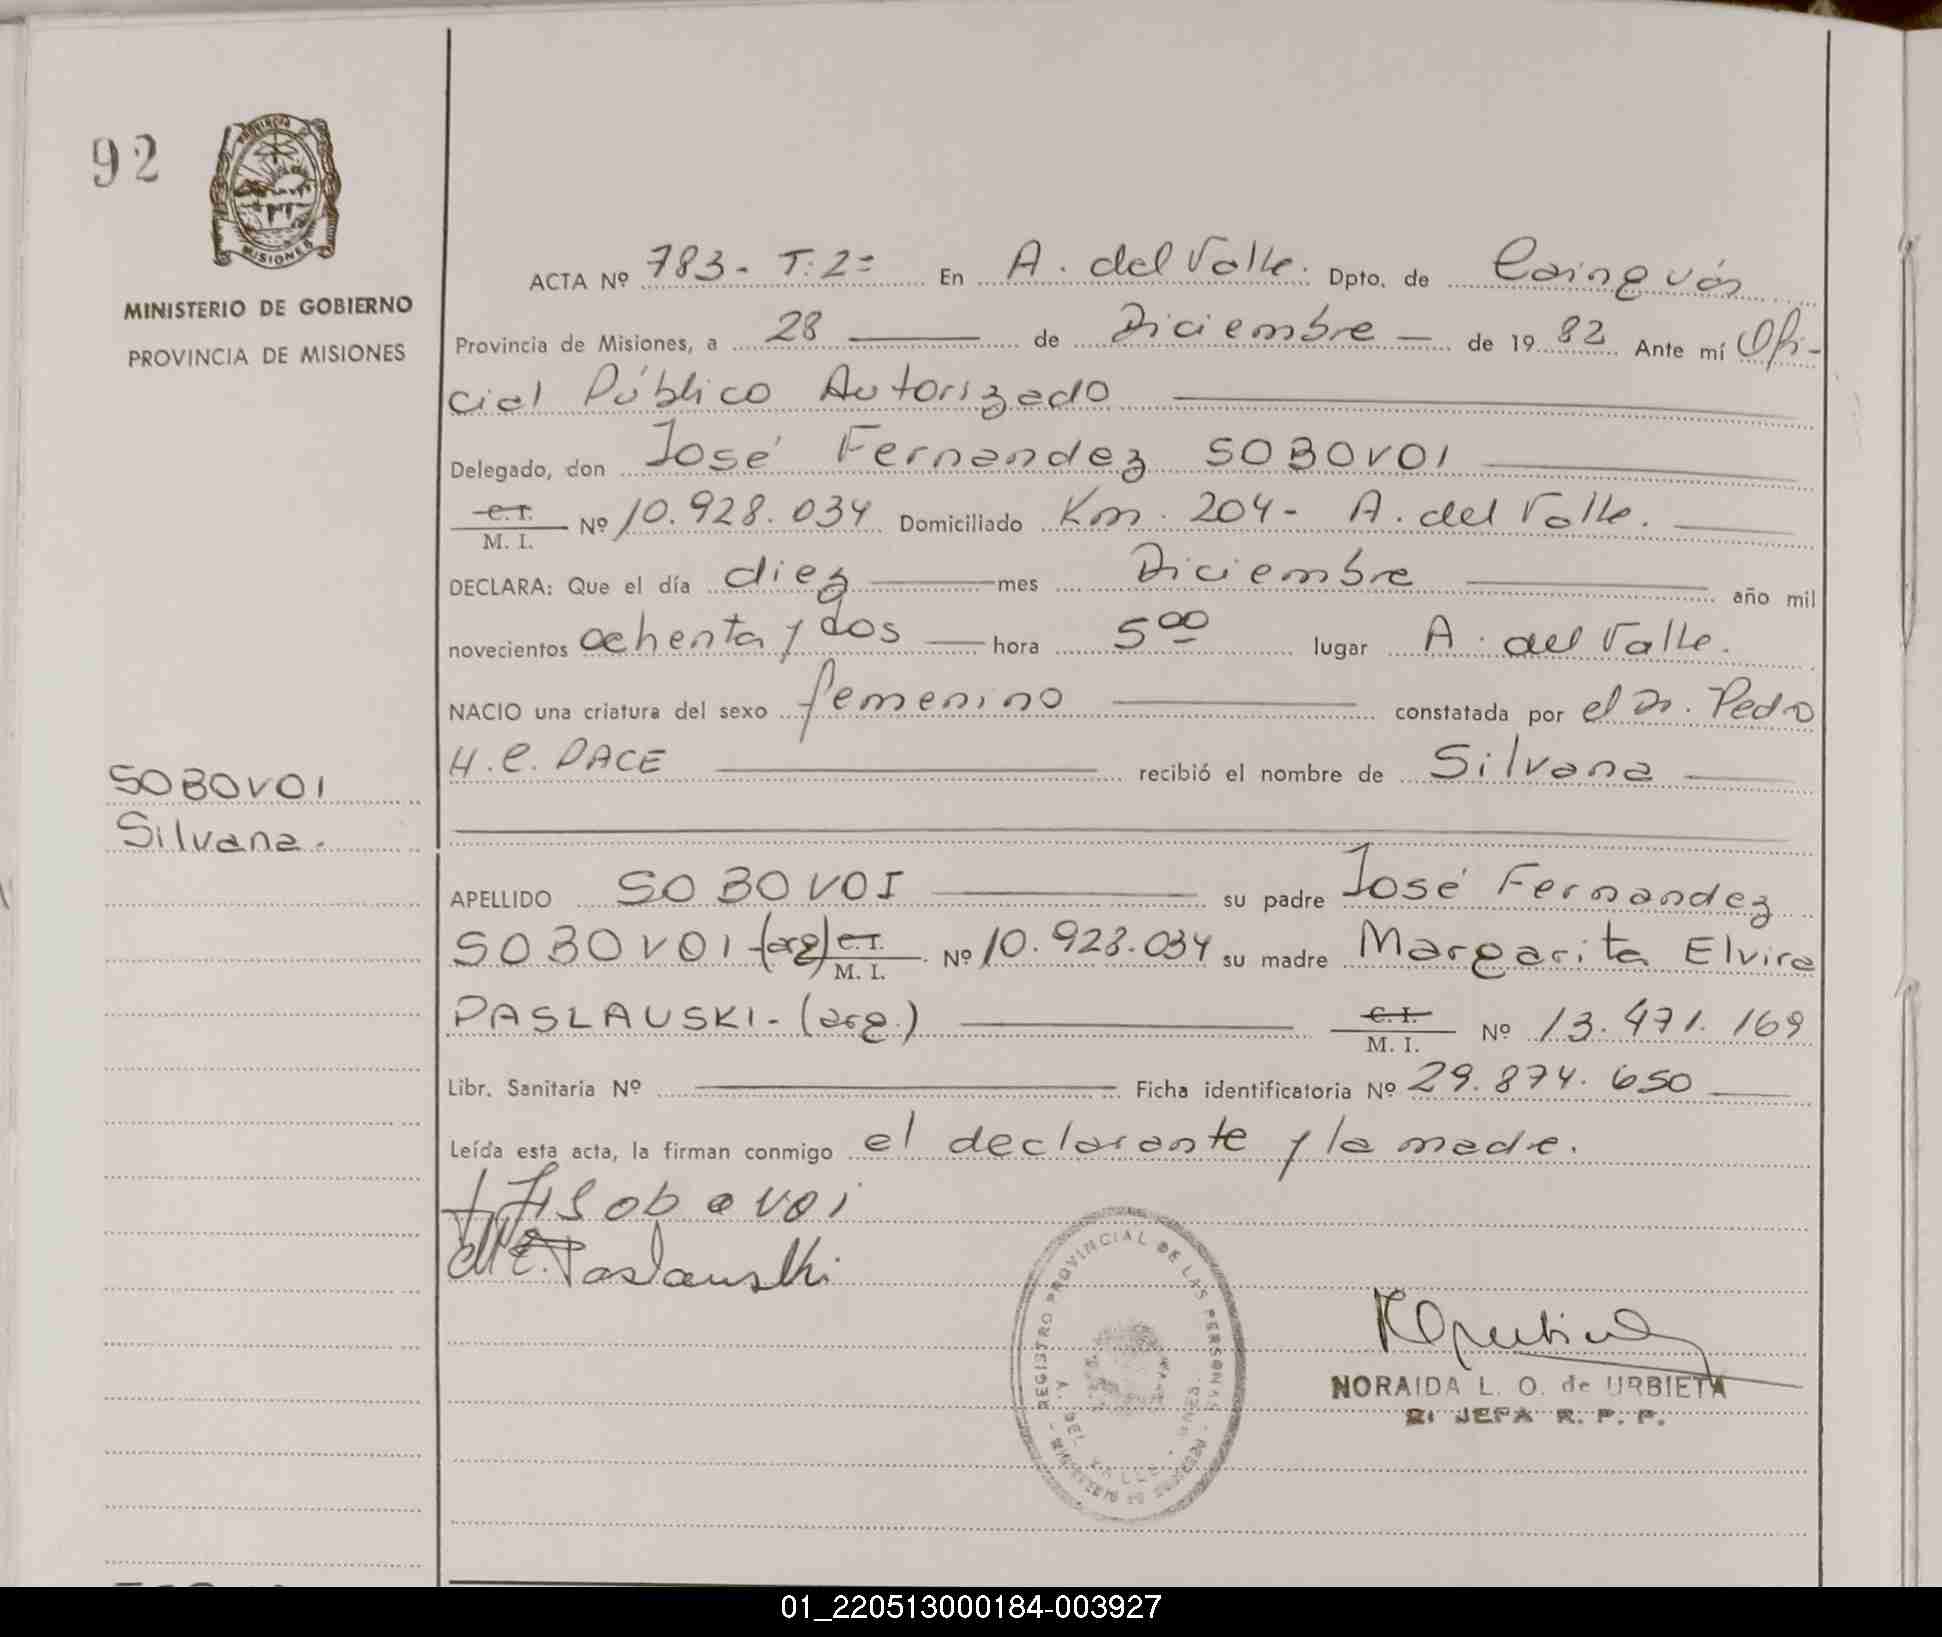 92
PROVINCIA
MISIONES
MINISTERIO DE GOBIERNO
PROVINCIA DE MISIONES
SOBOVOI
Silvana.
ACTA Nº 783 - T: 2º En A. del Valle. Dpto. de Cainguás
Provincia de Misiones, a 28 de Diciembre de 19 82 Ante mí Ofi-
cial Público Autorizado
Delegado, don José Fernandez SOBOVOI
C.I. M. I. Nº 10.928.034 Domiciliado Km. 204 - A. del Valle.
DECLARA: Que el día diez mes Diciembre año mil
novecientos ochenta y dos hora 5 00 lugar A. del Valle.
NACIO una criatura del sexo femenino constatada por el Dr. Pedro
H. C. PACE recibió el nombre de Silvana
APELLIDO SOBOVOI su padre José Fernandez
SOBOVOI - (arg) C.I. M. I. Nº 10.928.034 su madre Margarita Elvira
PASLAUSKI - (arg.) C.I. M. I. Nº 13.471.169
Libr. Sanitaria Nº Ficha identificatoria Nº 29.874.650
Leída esta acta, la firman conmigo el declarante y la madre.
Sobovoi
M E. Paslauski
REGISTRO PROVINCIAL DE LAS PERSONAS
A. DEL VALLE
NORAIDA L. O. de URBIETA
JEFA R. P. P.
01_220513000184-003927